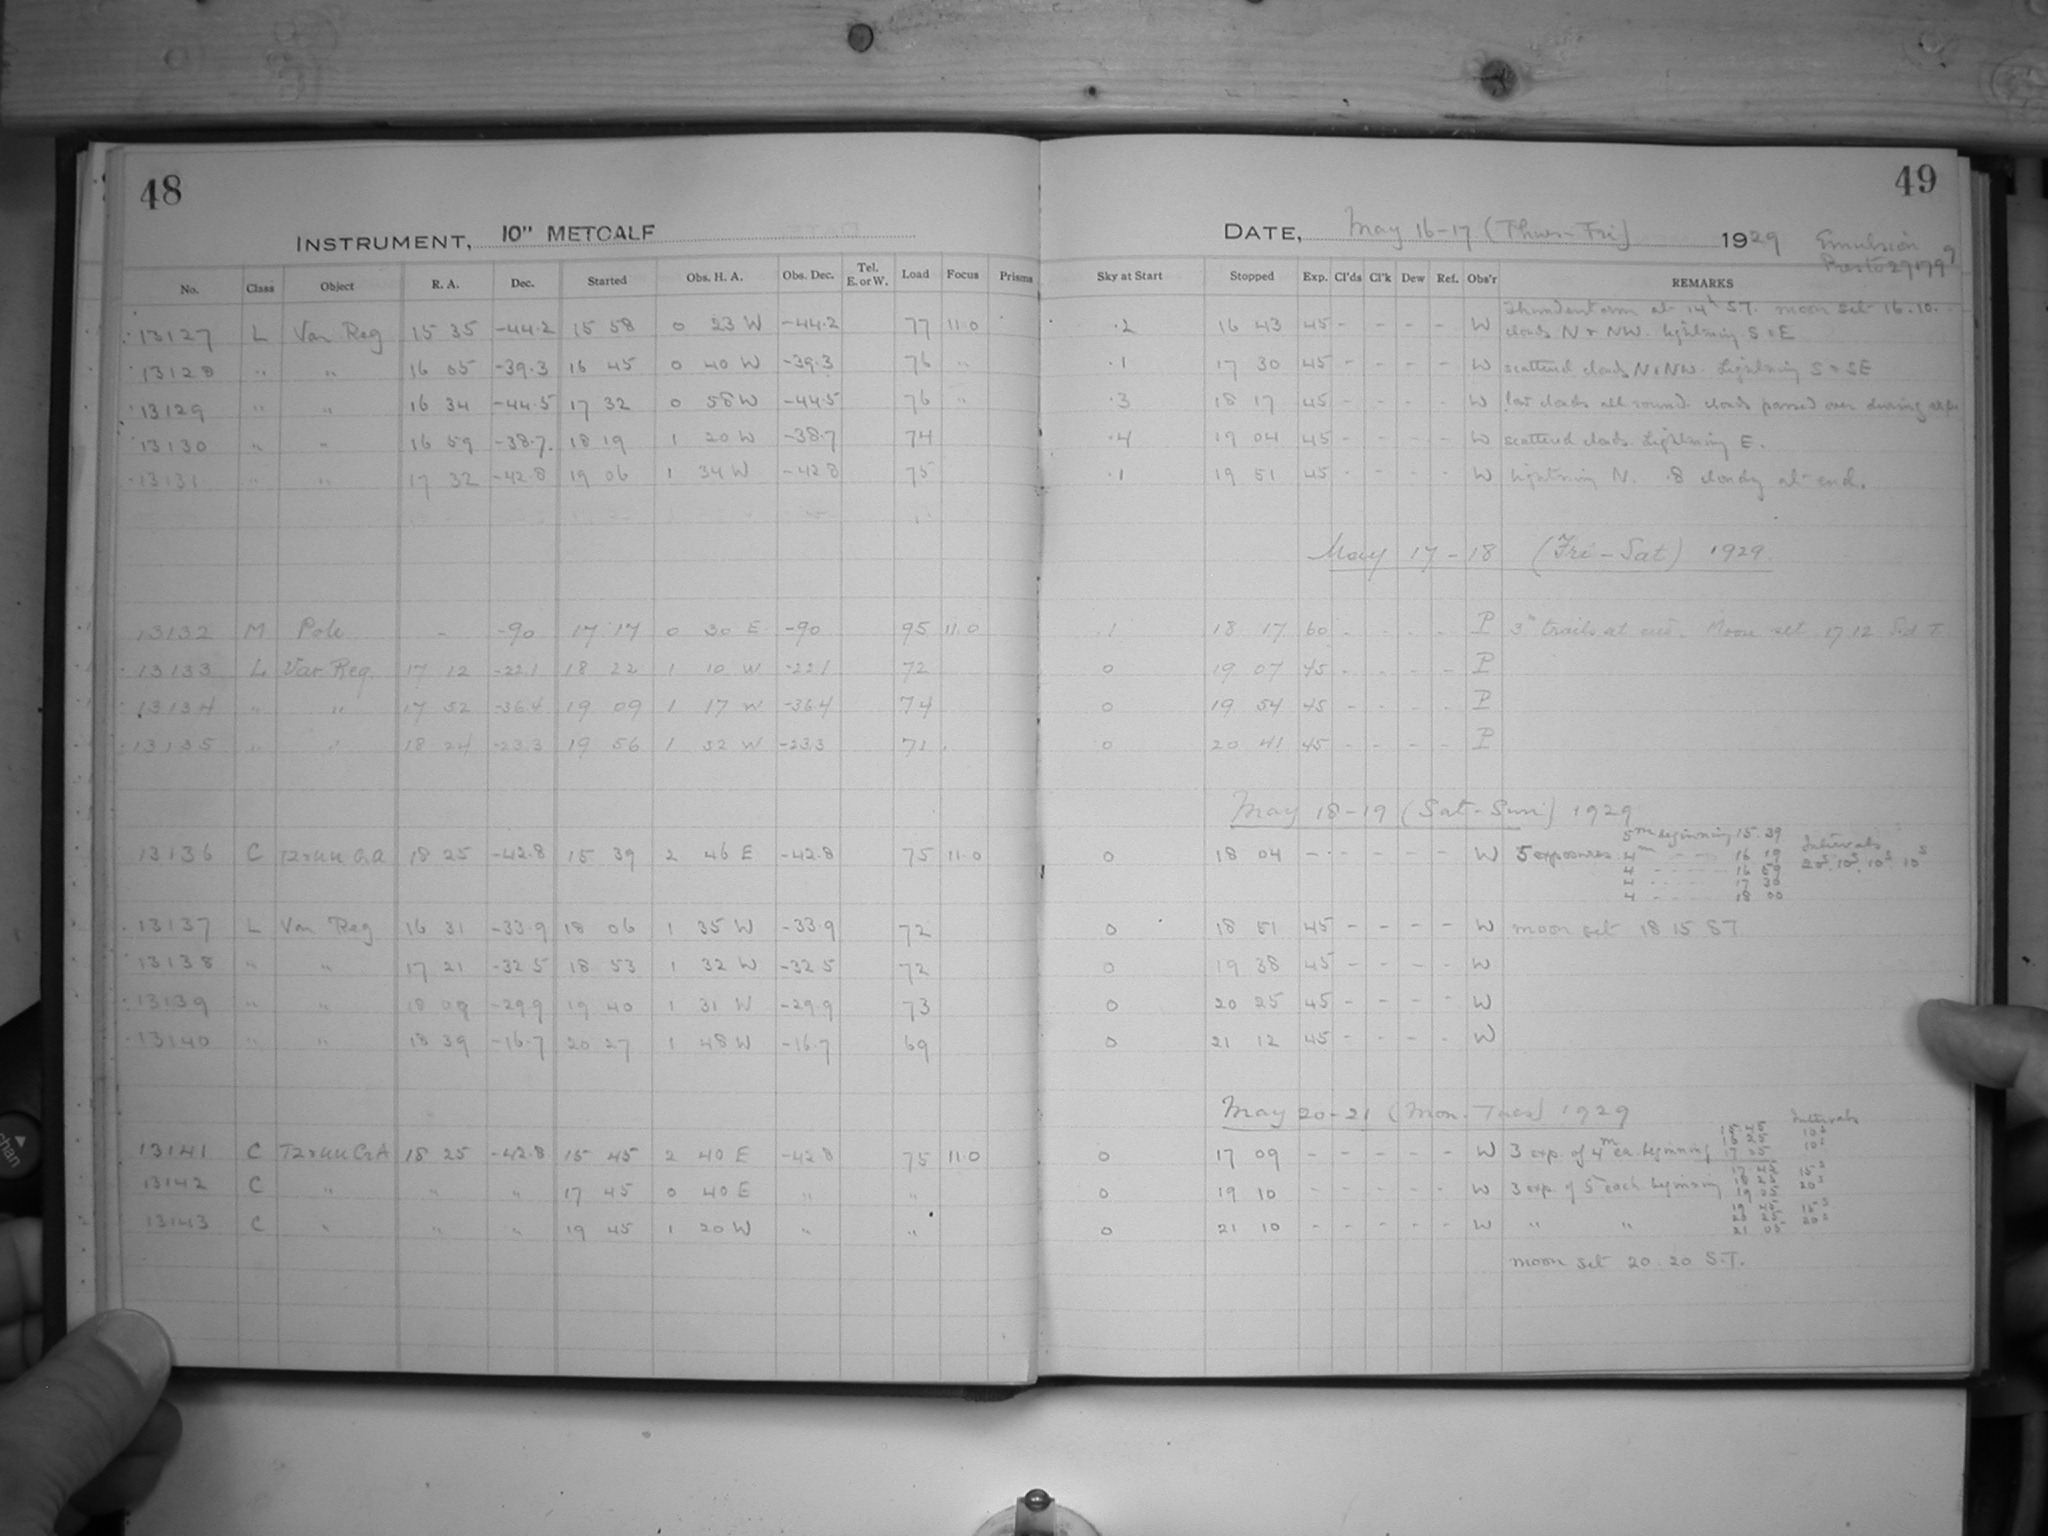 48
INSTRUMENT, 10" METCALF
No. Class Object R. A. Dec. Started Obs. H. A. Obs. Dec. Tel. E. or W. Load Focus Prisms
13127 L Var Reg 15 35 -44.2 15 58 0 23 W -44.2 77 11.0
13128 " " 16 05 -39.3 16 45 0 40 W -39.3 76 "
13129 " " 16 34 -44.5 17 32 0 58 W -44.5 76 "
13130 " " 16 59 -38.7 18 19 1 20 W -38.7 74
13131 " " 17 32 -42.8 19 06 1 34 W -42.8 75
13132 M Pole - -90 17 17 0 30 E -90 95 11.0
13133 L Var Reg. 17 12 -22.1 18 22 1 10 W -22.1 72
13134 " " 17 52 -36.4 19 09 1 17 W -36.4 74
13135 " " 18 24 -23.3 19 56 1 32 W -23.3 71
13136 C 18 25 -42.8 15 39 2 46 E -42.8 75 11.0
13137 L Var Reg 16 31 -33.9 18 06 1 35 W -33.9 72
13138 " " 17 21 -32.5 18 53 1 32 W -32.5 72
13139 " " 18 09 -29.9 19 40 1 31 W -29.9 73
13140 " " 18 39 -16.7 20 27 1 48 W -16.7 69
13141 C 18 25 -42.8 15 45 2 40 E -42.8 75 11.0
13142 C " " " 17 45 0 40 E " "
13143 C " " " 19 45 1 20 W " "
49
DATE, May 16-17 (Thurs-Fri) 1929 Emulsion
Presto
Sky at Start Stopped Exp. Cl'ds Cl'k Dew Ref. Obs'r REMARKS
Thunderstorm at 14h S.T. moon set 16.10.
.2 16 43 45 - - - - W clouds N & NW. lightning S & E
.1 17 30 45 - - - - W scattered clouds N & NW. Lightning S & SE
.3 18 17 45 - - - - W low clouds all round. clouds passed over during
.4 19 04 45 - - - - W scattered clouds. Lightning E.
.1 19 51 45 - - - - W lightning N. .8 cloudy at end.
May 17-18 (Fri-Sat) 1929
.1 18 17 60 - - - - P trails at end. Moon set 17 12 Sid T
0 19 07 45 - - - - P
0 19 54 45 - - - - P
0 20 41 45 - - - - P
May 18-19 (Sat-Sun) 1929
5m beginning 15.39 Intervals
0 18 04 - - - - - W 5 exposures 4m - - 16 19 20s 10s 10s 10s
4 - - - 16 59
4 - - - 17 30
4 - - - 18 00
0 18 51 45 - - - - W moon set 18 15 ST
0 19 38 45 - - - - W
0 20 25 45 - - - - W
0 21 12 45 - - - - W
May 20-21 (Mon-Tues) 1929 Intervals
0 17 09 - - - - - W 3 exp. of 4m ea. beginning
0 19 10 - - - - - W 3 exp. of 5 each beginning
0 21 10 - - - - - W " "
moon set 20.20 S.T.